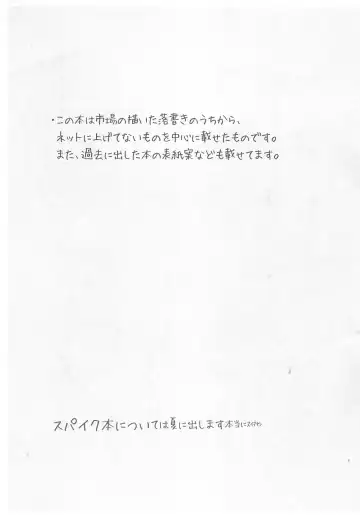 ・この本は市場の描いた落書きのうちから、
ネットに上げてないものを中心に載せたものです。
また、過去に出した本の表紙案なども載せてます。
スパイク本については夏に出します本当に